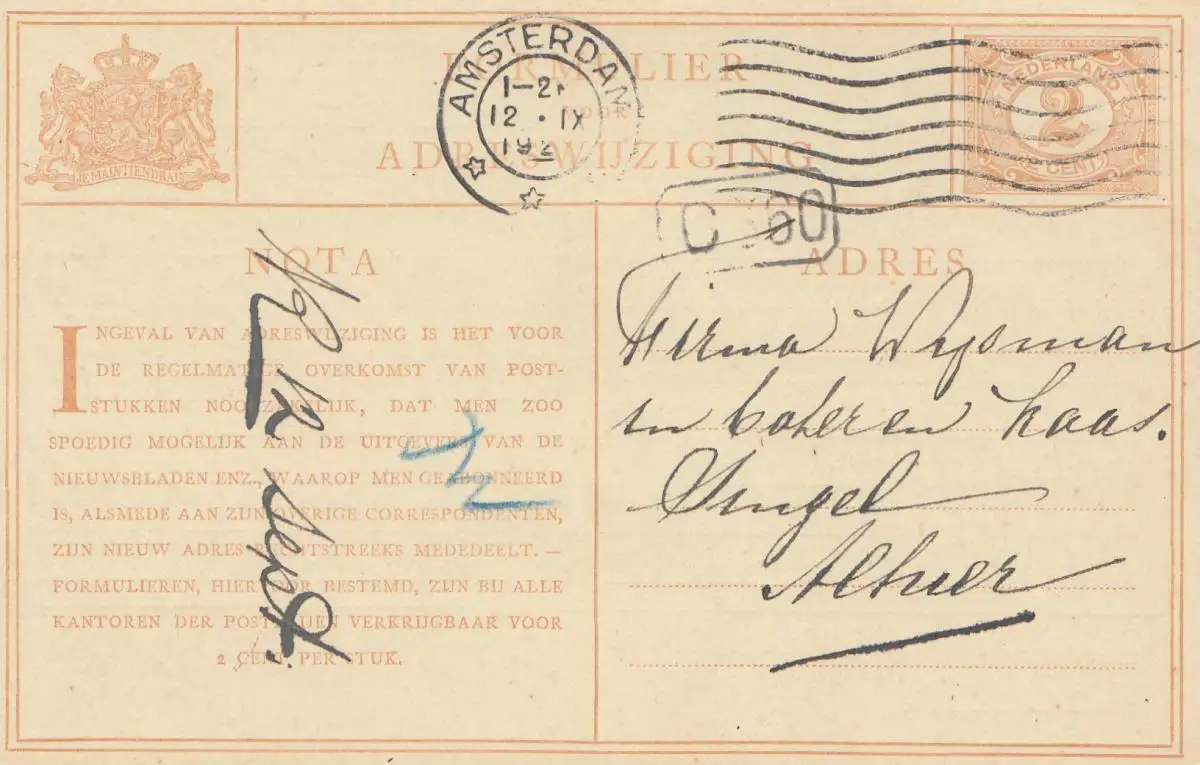 FORMULIER
VOOR
ADRESWIJZIGING
JE MAINTIENDRAI
AMSTERDAM
1-2
12 · IX
192
NEDERLAND
2
CENT
C 60
NOTA
INGEVAL VAN ADRESWIJZIGING IS HET VOOR
DE REGELMATIGE OVERKOMST VAN POST-
STUKKEN NOODZAKELIJK, DAT MEN ZOO
SPOEDIG MOGELIJK AAN DE UITGEVERS VAN DE
NIEUWSBLADEN ENZ., WAAROP MEN GEABONNEERD
IS, ALSMEDE AAN ZIJN OVERIGE CORRESPONDENTEN,
ZIJN NIEUW ADRES RECHTSTREEKS MEDEDEELT. —
FORMULIEREN, HIERVOOR BESTEMD, ZIJN BIJ ALLE
KANTOREN DER POSTERIJEN VERKRIJGBAAR VOOR
2 CENT PER STUK.
ADRES
Firma Wysman
in boter en Kaas.
Singel
Alhier